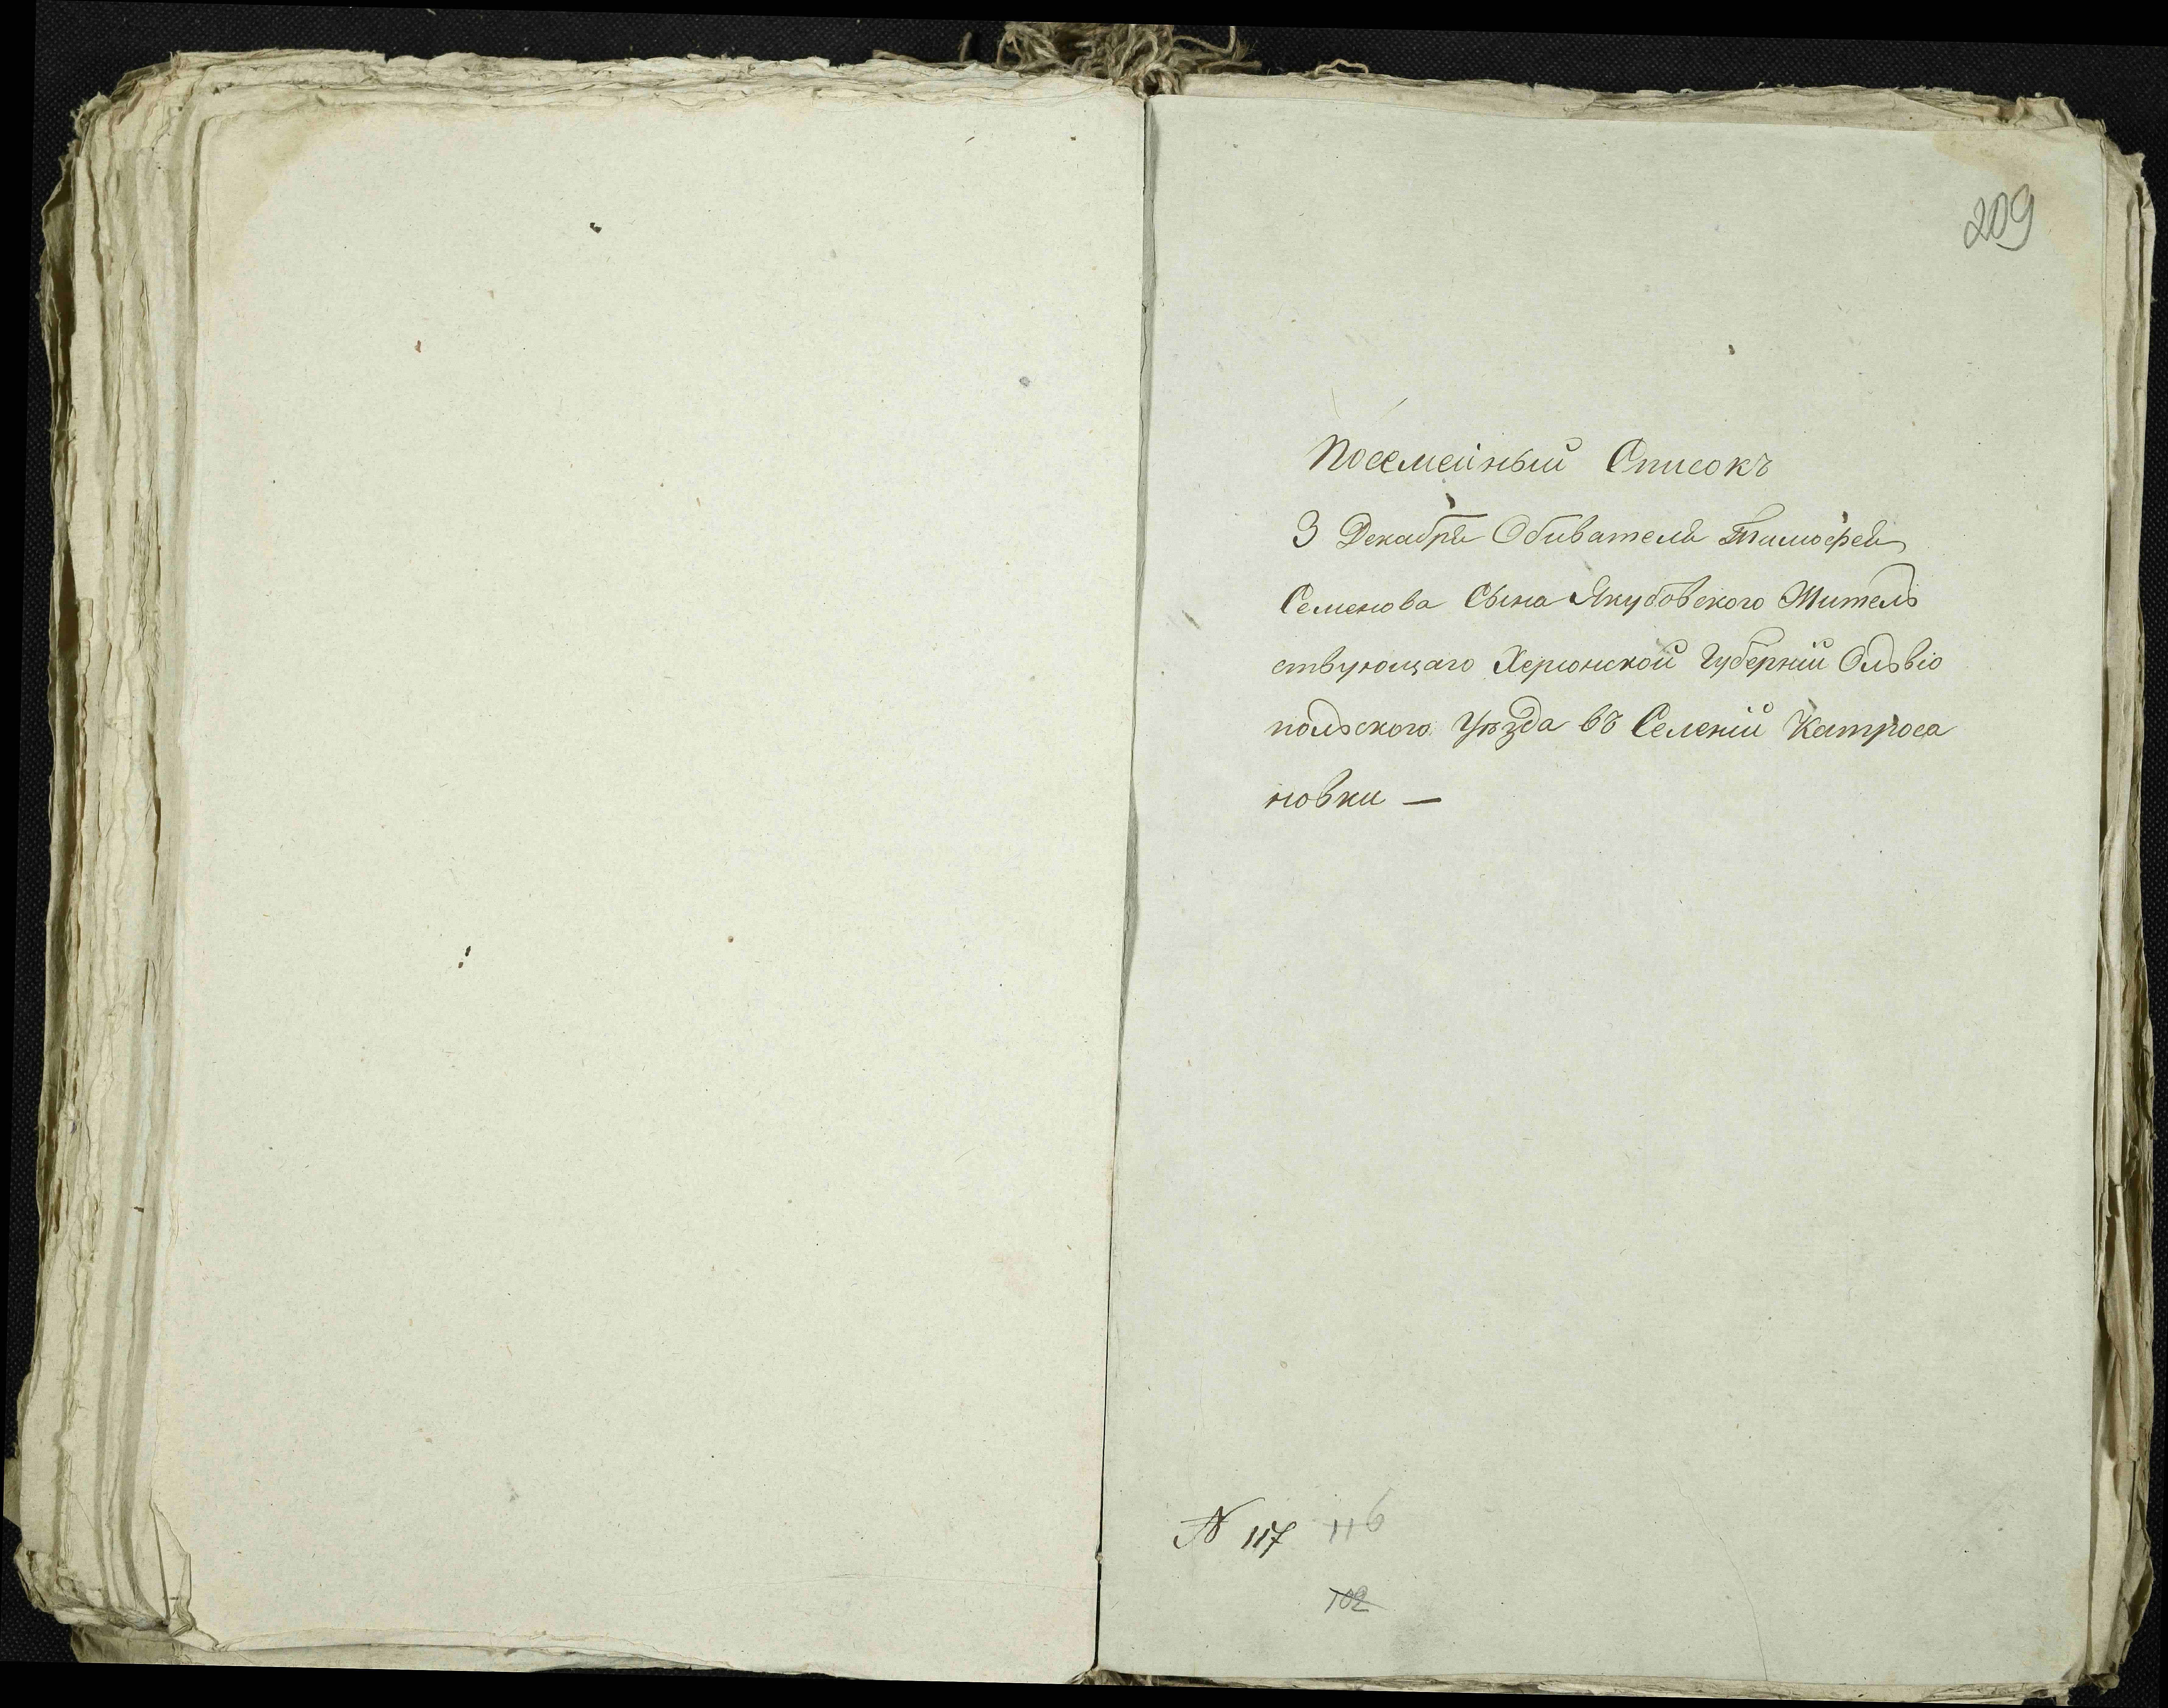 209
Посемейный Списокъ
3 Декабря Обивателя Тимофея
Семенова Сына Якубовского Житель
ствующаго Херсонской Губерніи Ольвіо
польского Уѣзда въ Селеніи Катроса
новки —
№ 117 116
102